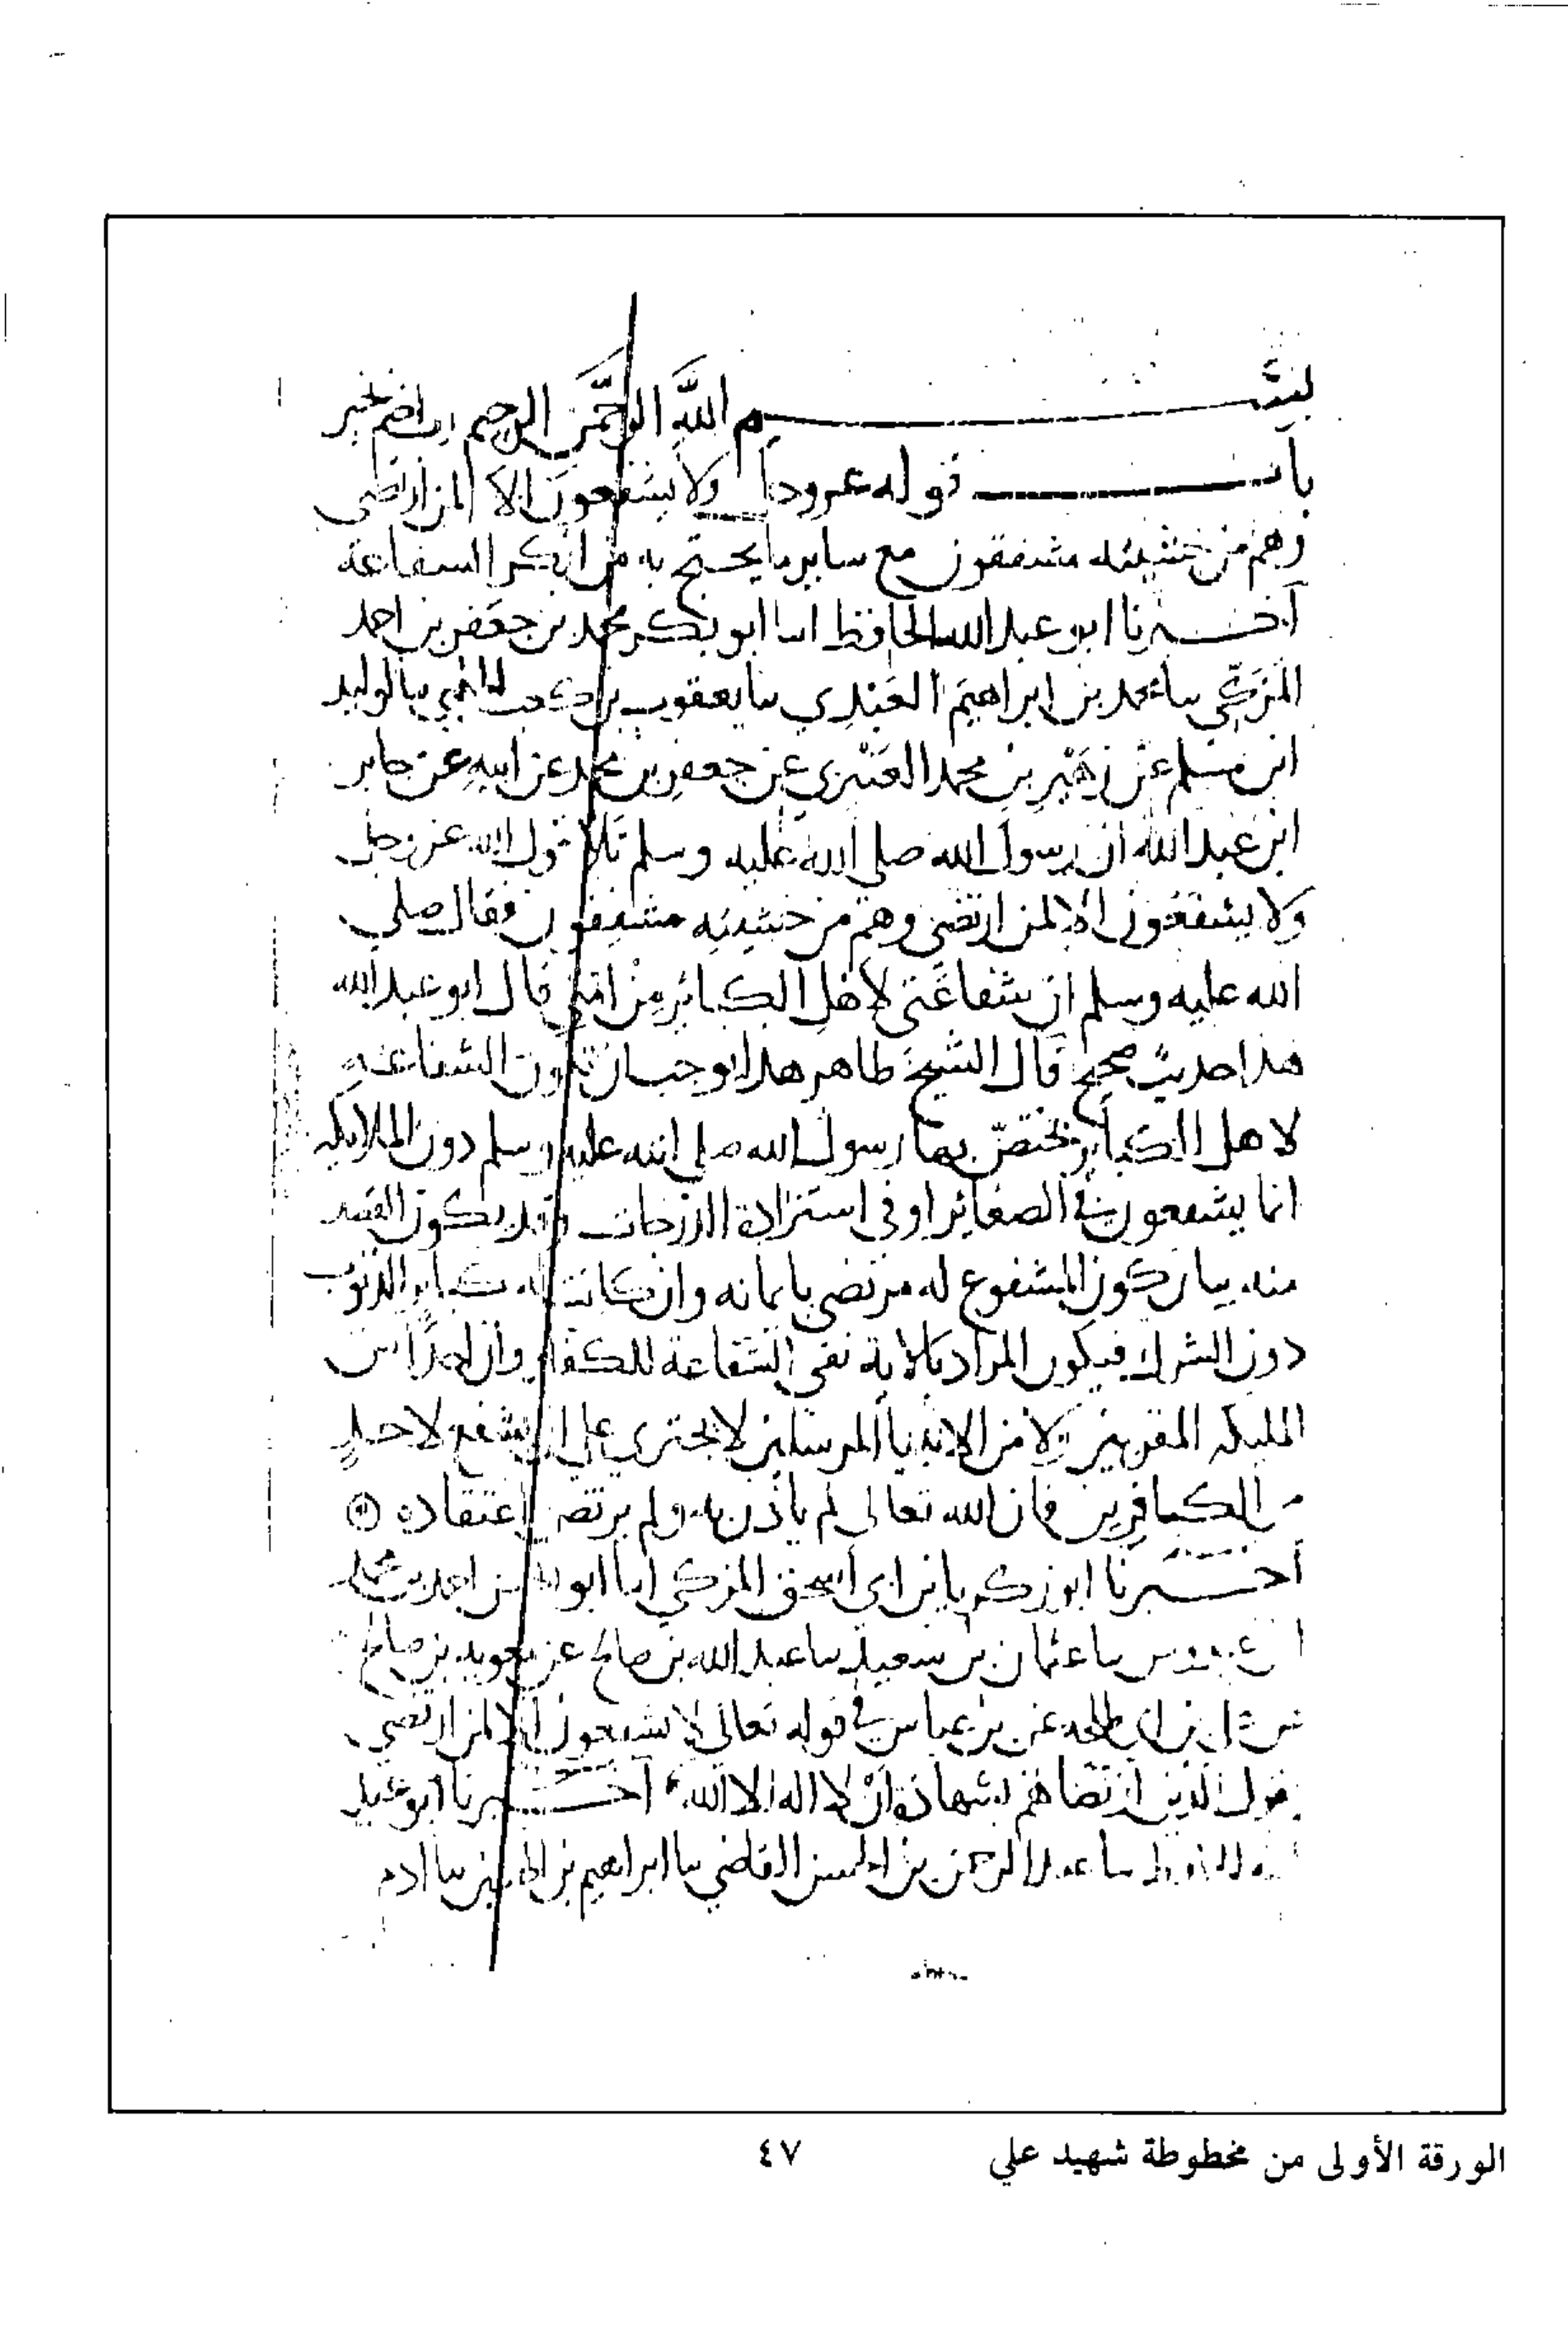 بسم الله الرحمن الرحيم رب اختم بخير
باب قوله عز وجل ولا يشفعون الا لمن ارتضى
وهم من خشيته مشفقون مع ساير ما يحتج به من انكر الشفاعة
أخبرنا ابو عبد الله الحافظ انبا ابو بكر محمد بن جعفر بن احمد
المزكي ثنا محمد بن ابراهيم العبدي ثنا يعقوب بن كعب الحلبي ثنا الوليد
ابن مسلم عن زهير بن محمد العنبري عن جعفر بن محمد عن ابيه عن جابر
ابن عبد الله ان رسول الله صلى الله عليه وسلم تلا قول الله عز وجل
ولا يشفعون الا لمن ارتضى وهم من خشيته مشفقون فقال صلى
الله عليه وسلم ان شفاعتي لاهل الكبائر من امتي قال ابو عبد الله
هذا حديث صحيح قال الشيخ ظاهر هذا يوجب ان تكون الشفاعة
لاهل الكبائر يختص بها رسول الله صلى الله عليه وسلم دون الملايكه
انما يشفعون في الصغائر او في استزادة الدرجات وقد يكون القصد
منه بيان كون المشفوع له مرتضى بايمانه وان كانت له كباير الذنوب
دون الشرك فيكون المراد بالاية نفي الشفاعة للكفار وان احدًا من
المليكه المقربين ولا من الانبياء المرسلين لا يجترى على ان يشفع لاحدٍ
من الكافرين فان الله تعالى لم ياذن به ولم يرتض اعتقاده
أخبرنا ابو زكريا بن ابي اسحق المزكي انبا ابو الحسن احمد بن محمد
ابن عبدوس ثنا عثمان بن سعيد ثنا عبد الله بن صالح عن معويه بن صالح
عن علي بن ابي طلحه عن بن عباس في قوله تعالى لا يشفعون الا لمن ارتضى
يقول الذين ارتضاهم بشهادة أن لا اله الا الله أخبرنا ابو عبد
الله الحافظ ثنا عبد الرحمن بن الحسن القاضي ثنا ابراهيم بن الحسين ثنا ادم
الورقة الأولى من مخطوطة شهيد علي
٤٧